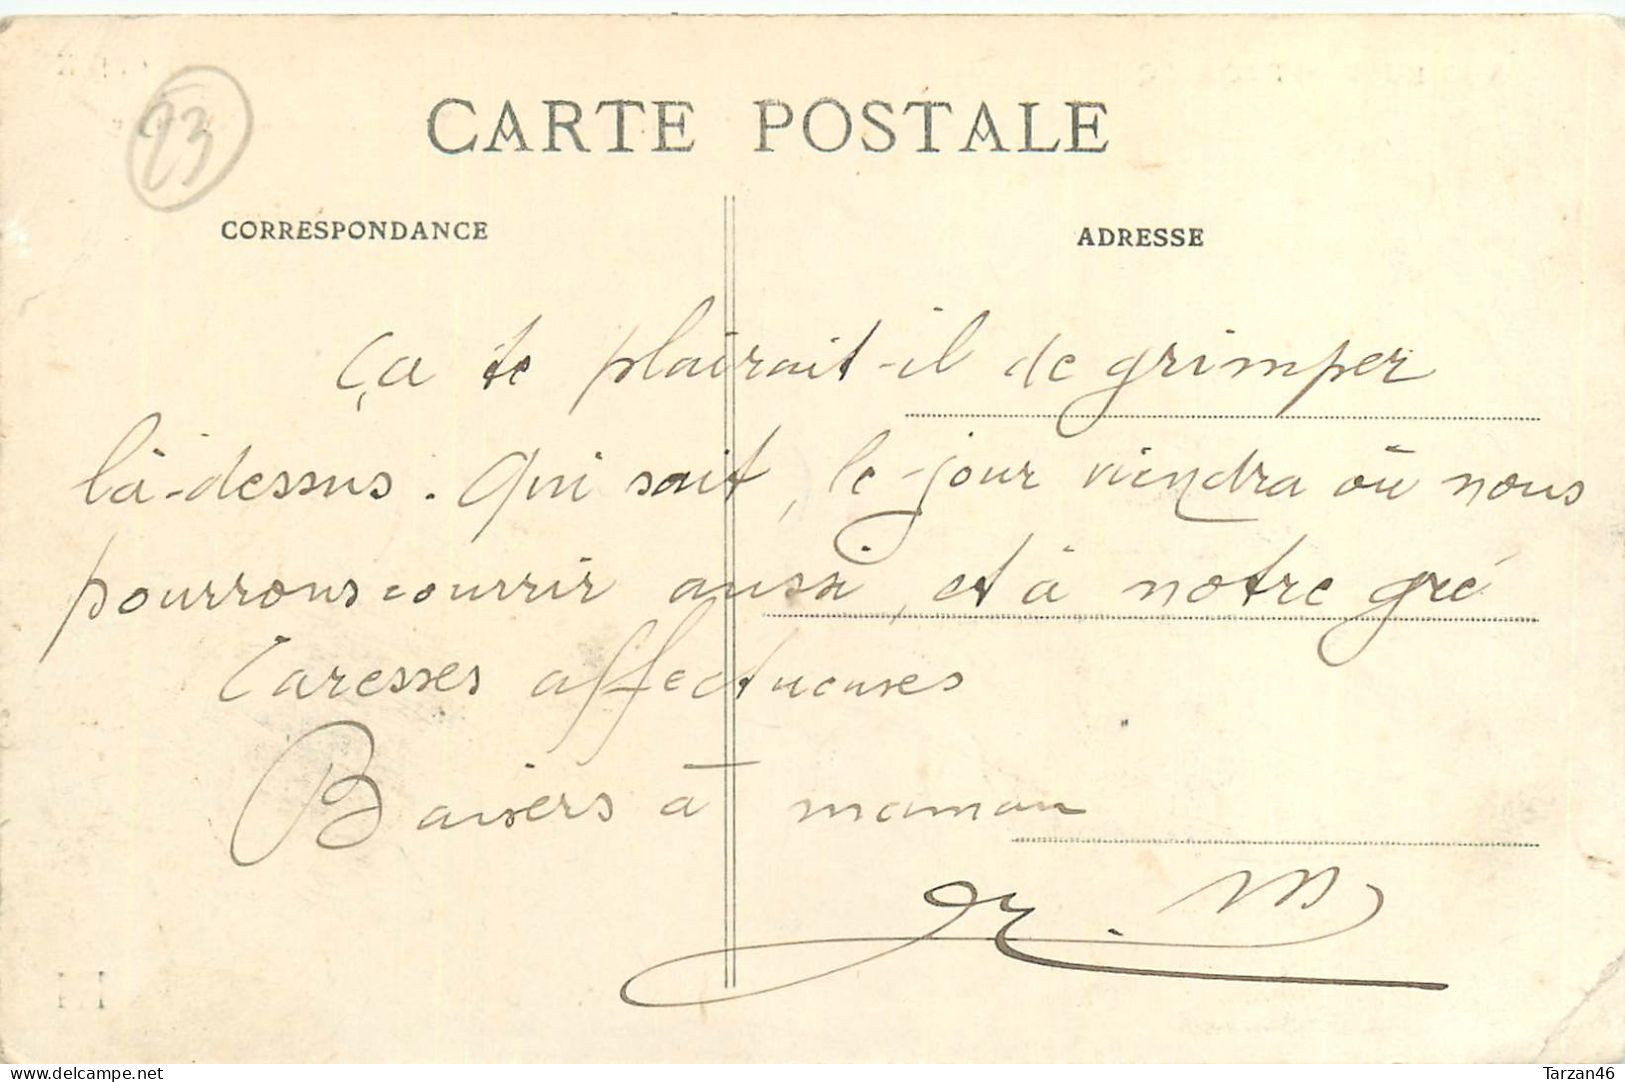 23
CARTE POSTALE
CORRESPONDANCE
ADRESSE
Ça te plairait-il de grimper
là-dessus. Qui sait, le jour viendra où nous
pourrons courrir aussi, et à notre gré
Caresses affectueuses
Baisers à maman
M
delcampe.net
Tarzan46